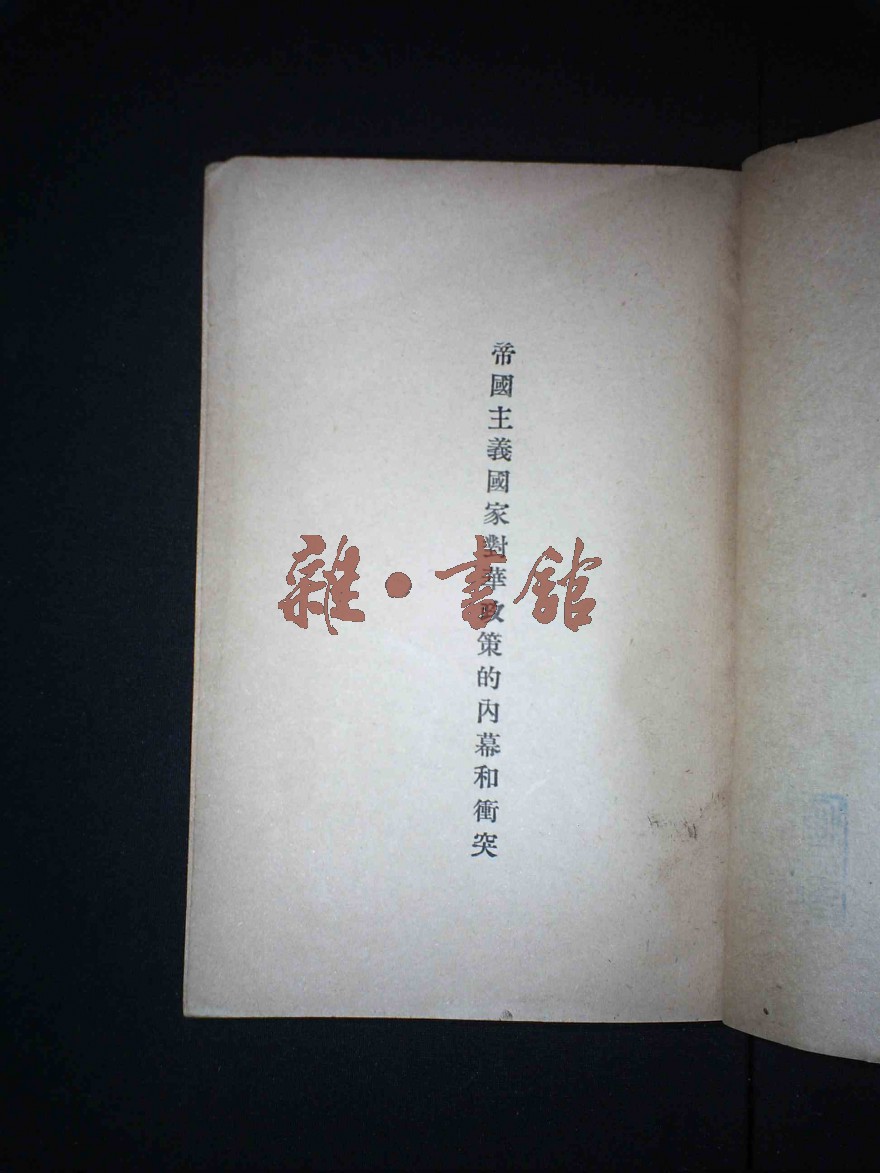 帝國主義國家對華政策的內幕和衝突
雜·書館